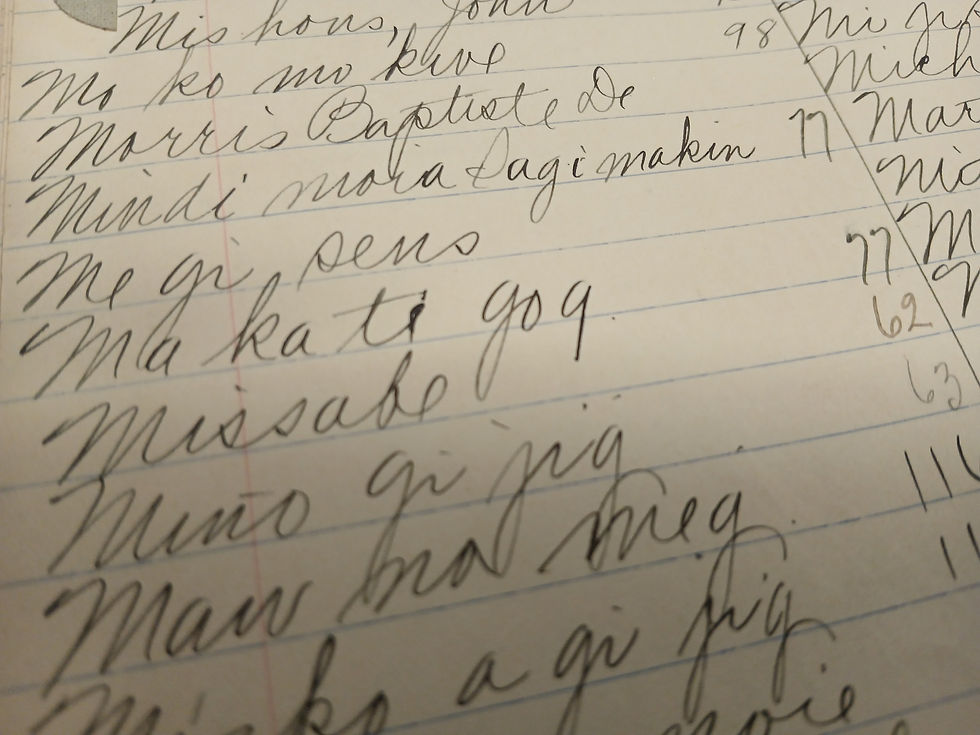 Mishons, John
Mo ko mo kive 98
Morris Baptiste De
Mindi moia Sagimakin 77
Me gi sens 77
Ma ka te goq 62
Missabe 63
Mino gi jig
Maw na meg
a gi jig
Mi
Mich
Mar
Nic
M